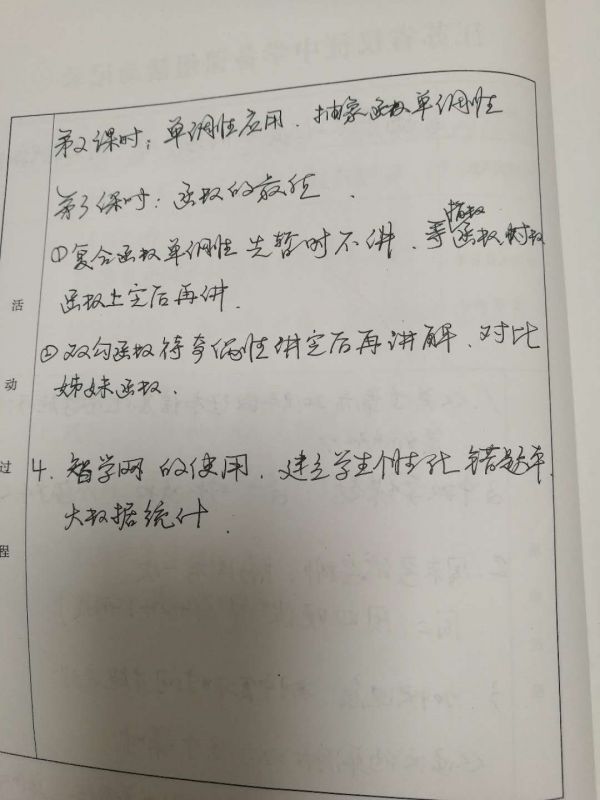 第2课时：单调性应用、抽象函数单调性
第3课时：函数的最值、
①复合函数单调性先暂时不讲、等指数函数、对数
函数上完后再讲.
②双勾函数待奇偶性讲完后再讲解、对比
姊妹函数、
4. 智学网的使用、建立学生个性化错题本、
大数据统计
活
动
过
程